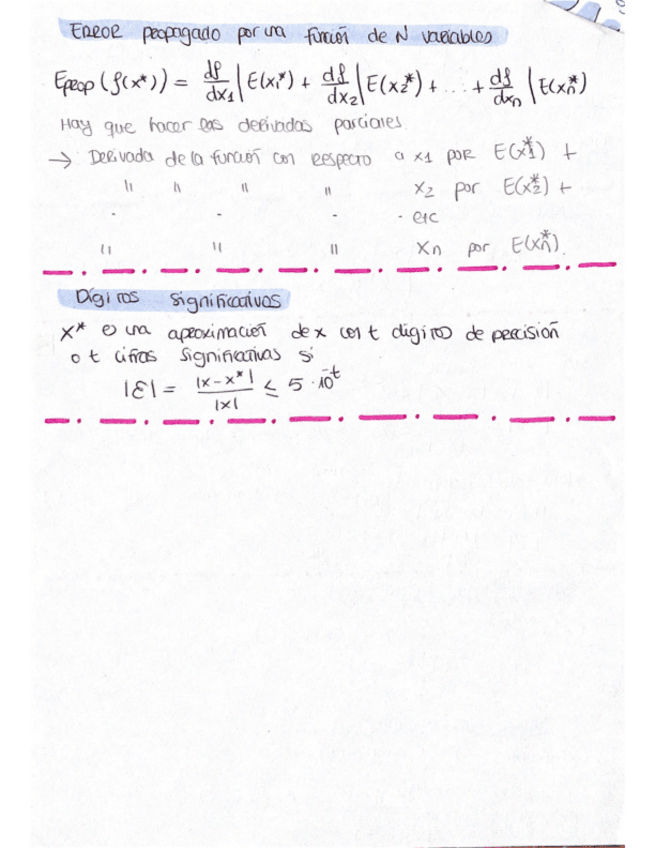 Error propagado por una función de N variables
Eprop (f(x*)) = df/dx1 | E(x1*) + df/dx2 | E(x2*) + ... + df/dxn | E(xn*)
Hay que hacer las derivadas parciales.
→ Derivada de la función con respecto a x1 por E(x1*) +
" " " " x2 por E(x2*) +
. . . . etc
" " " xn por E(xn*).
Dígitos significativos
x* es una aproximación de x con t dígitos de precisión
o t cifras significativas si
|ε| = |x-x*| / |x| ≤ 5·10^-t